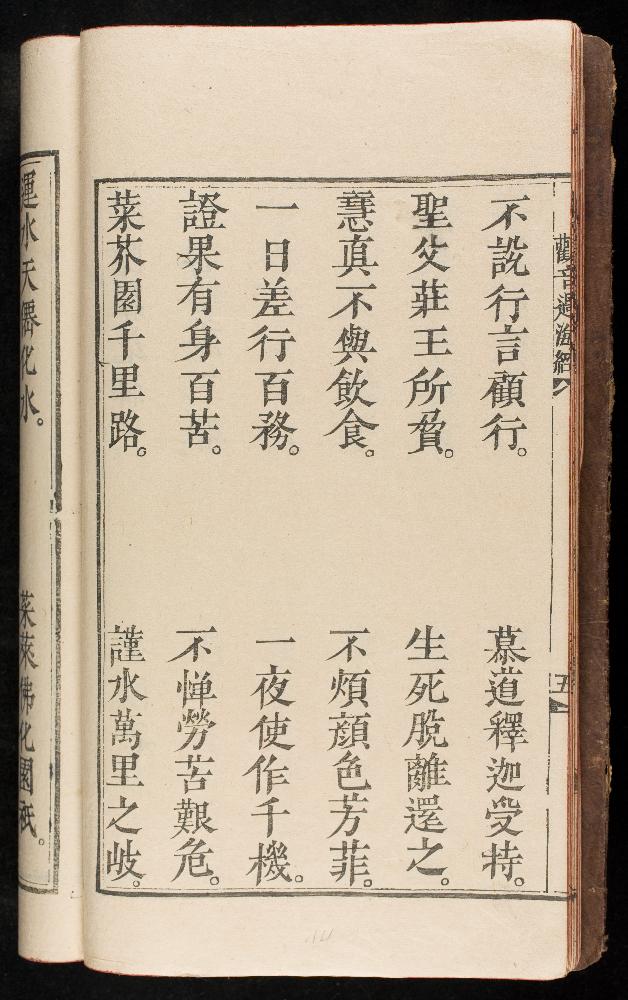 觀音過海經
五
不說行言顧行。
慕道釋迦受持。
聖父莊王所貧。
生死脫離還之。
慧真不與飲食。
不煩顏色芳菲。
一日差行百務。
一夜使作千機。
證果有身百苦。
不憚勞苦艱危。
菜芥園千里路。
謹水萬里之岐。
運水天 化水。
菜菜佛化園祇。